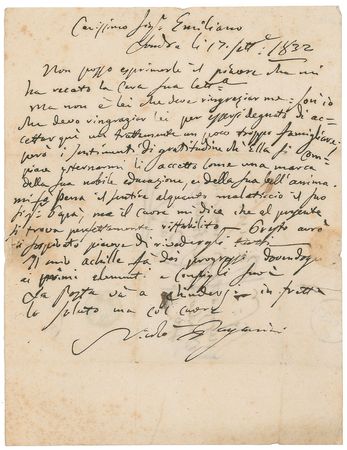 Carissimo Sig.r Emiliano
Londra li 17. Sett.e 1832
Non posso esprimerle il piacere che mi
ha recato la Cara sua lett.a
ma non è lei che deve ringraziarme = son io
che devo ringraziar lei per essersi degnato di ac=
cettar qui un trattamento un poco troppo famigliare
però i sentimenti di gratitudine che ella si com=
piace esternarmi li accetto come una marca
della sua nobile educazione, e della sua bell'anima.
mi fa pena il sentire alquanto malaticcio il suo
Sig.r Papà, ma il cuore mi dice che al presente
si trova perfettamente ristabilito = Presto avrò
il sospirato piacere di riveder
Il mio achille fa dei progressi dovendosi
ai primi elementi e consigli suoi
La Posta và a chiudersi = in fretta
lo saluto ma col cuore
Nicolò Paganini